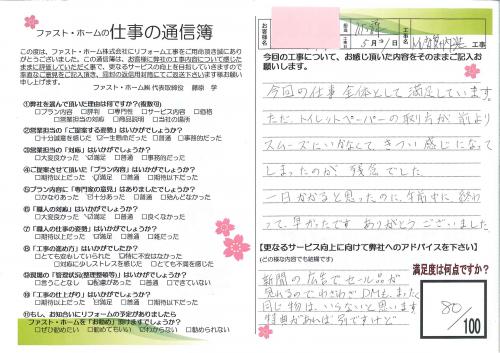 ファスト・ホームの仕事の通信簿
この度は、ファスト・ホーム株式会社にリフォーム工事をご用命頂き誠にあり
がとうございました。この通信簿は、お客様に弊社の工事内容について感じた
ままに評価していただく事で、更なるサービスの向上を目指していきますので
率直なご意見をご記入頂き、回封の返信用封筒にてご返送下さいます様お願い
申し上げます。
ファスト・ホーム㈱ 代表取締役 藤原 学
①弊社を選んで頂いた理由は何ですか?(複数可)
□プラン内容 □評判 □専門性 □サービス内容 □価格
□営業担当の対応 □商品説明 □当社の場所
②営業担当の「ご提案する姿勢」はいかがでしょうか?
□十分誠意を感じた □一生懸命だった □普通 □事務的だった
③営業担当の「対応」はいかがでしょうか?
□大変良かった □満足 □普通 □事務的だった
④ご提案させて頂いた「プラン内容」はいかがでしょうか?
□期待以上だった □満足 □普通 □期待以下だった
⑤プラン内容に「専門家の意見」はありましたでしょうか?
□かなりあった □十分あった □普通 □殆んどなかった
⑥「職人の対応」はいかがでしょうか?
□大変良かった □満足 □普通 □良くなかった
⑦「職人の仕事の姿勢」はいかがでしょうか?
□期待以上だった □満足 □普通 □雑だった
⑧「工事の進め方」はいかがでしたか?
□とても安心していられた □特に不安はなかった
□対応に少しストレスを感じた □とても不満を感じた
⑨現場の「管理状況(整理整頓等)」はいかがでしょうか?
□言うことなし □配慮があった □普通 □できていない
⑩「工事の仕上がり」はいかがでしょうか?
□期待以上だった □満足 □普通 □期待以下だった
⑪もし、お知合いにリフォームの予定がありましたら
ファスト・ホームを「お勧め」頂けますでしょうか?
□ぜひ勧めたい □勧めてもいい □わからない □勧められない
お客様名
5月31日
内装 工事
今回の工事について、お感じ頂いた内容をそのままご記入お
願いします。
今回の仕事全体として満足しています。
ただ、トイレットペーパーの取り方が前より
スムーズにいかなくて きつい感じになって
しまったのが 残念でした。
一日かかると思ったのに、午前中に終わ
って、早かったです ありがとうございました
【更なるサービス向上に向けて弊社へのアドバイスを下さい】
(どの様な内容でも結構です)
新聞の広告でセール品が
見れるのでわざわざDMも、まったく
同じ物は、いらないと思います
特典があれば別ですけど
満足度は何点ですか?
80/100